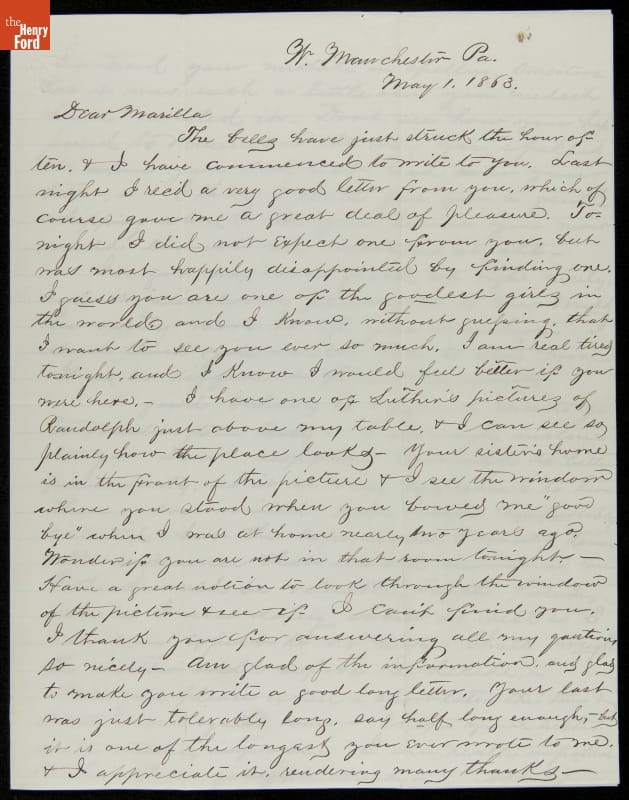 the
Henry
Ford
W. Manchester Pa.
May 1. 1863.
Dear Marilla
The bells have just struck the hour of
ten, & I have commenced to write to you. Last
night I rec'd a very good letter from you, which of
course gave me a great deal of pleasure. To-
night I did not expect one from you, but
was most happily disappointed by finding one.
I guess you are one of the goodest girls in
the world and I know, without guessing, that
I want to see you ever so much. I am real tired
tonight, and I know I would feel better if you
were here. – I have one of Luther's pictures of
Randolph just above my table, & I can see so
plainly how the place looks – Your sister's home
is in the front of the picture & I see the window
where you stood when you bowed me "good
bye" when I was at home nearly two years ago.
Wonder if you are not in that room tonight. –
Have a great notion to look through the window
of the picture & see if I can't find you.
I thank you for answering all my questions
so nicely – Am glad of the information, and glad
to make you write a good long letter. Your last
was just tolerably long, say half long enough, – but
it is one of the longest you ever wrote to me.
& I appreciate it, rendering many thanks –